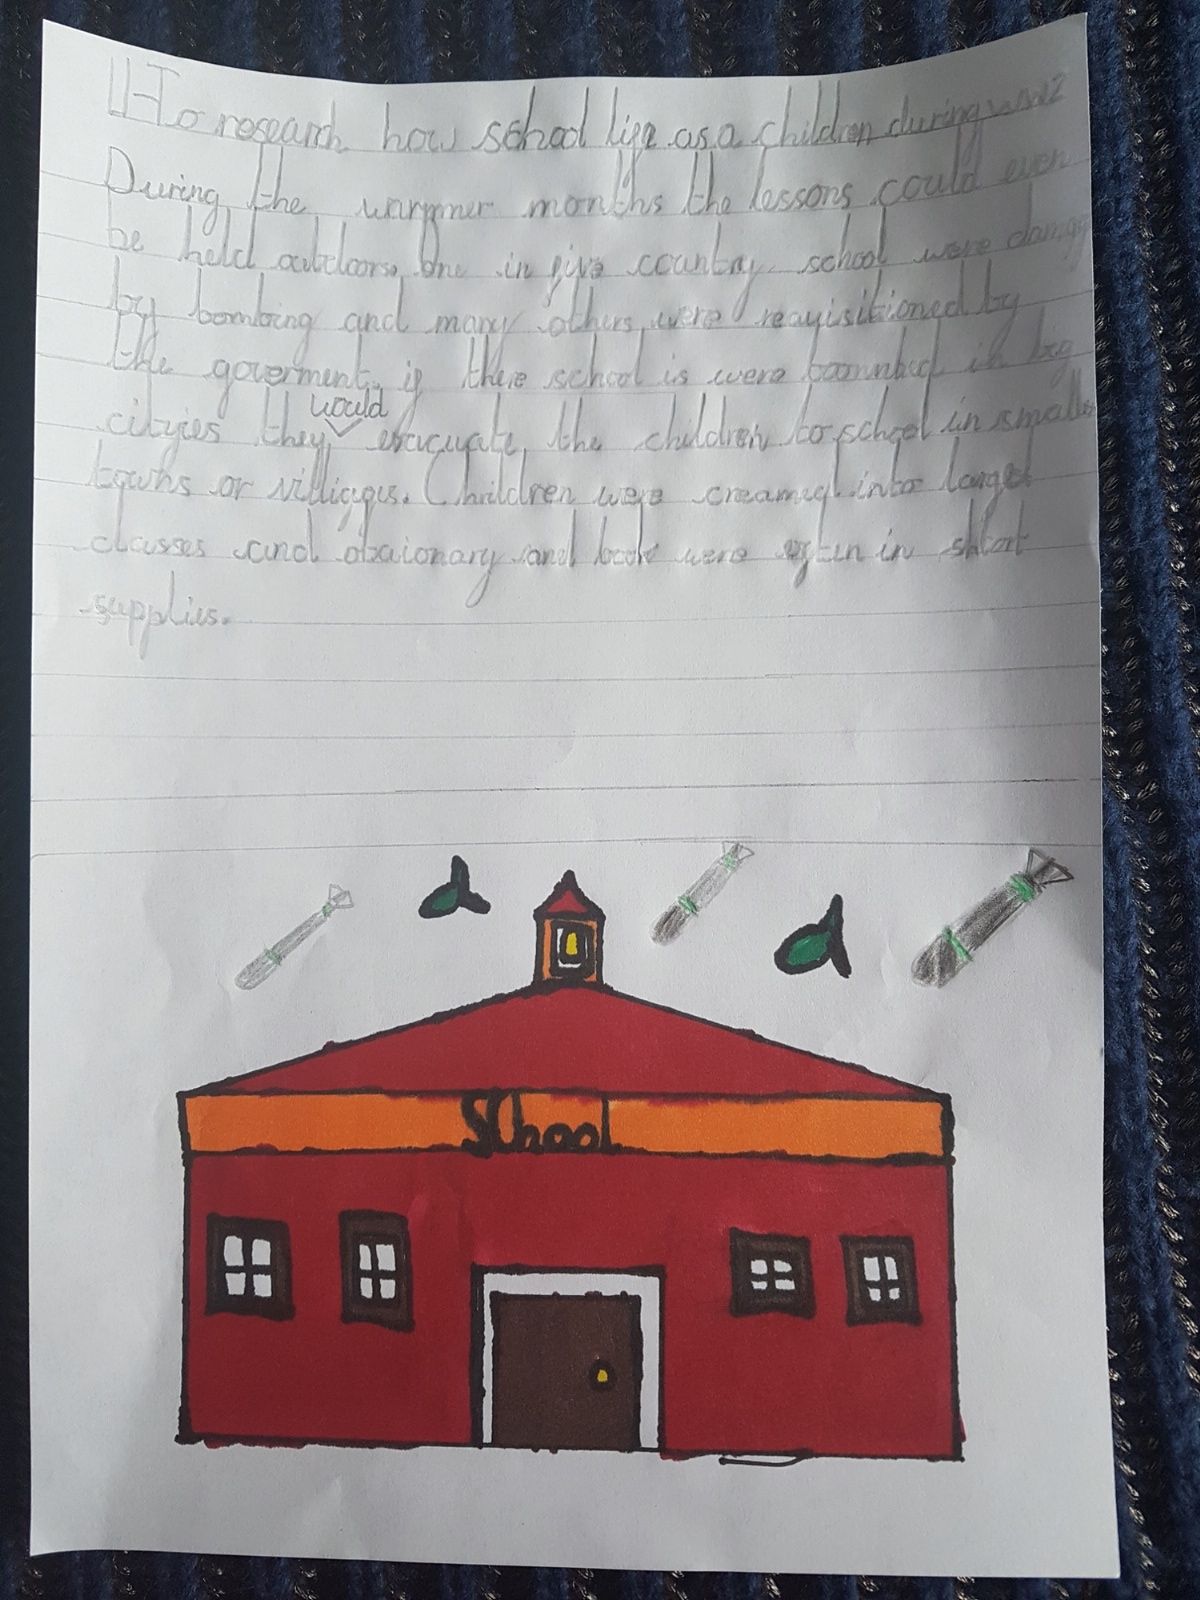 LI-To research how school life as a children during WW2
During the warmer months the lessons could even
be held outdoors. One in five country school were damge
by bombing and many others were requisitioned by
the goverment. if there school is were boombed in big
cityies they would evacuate the children to school in smaller
towns or villiages. Children were creamed into larger
classes and and book were often in short
supplies.
School